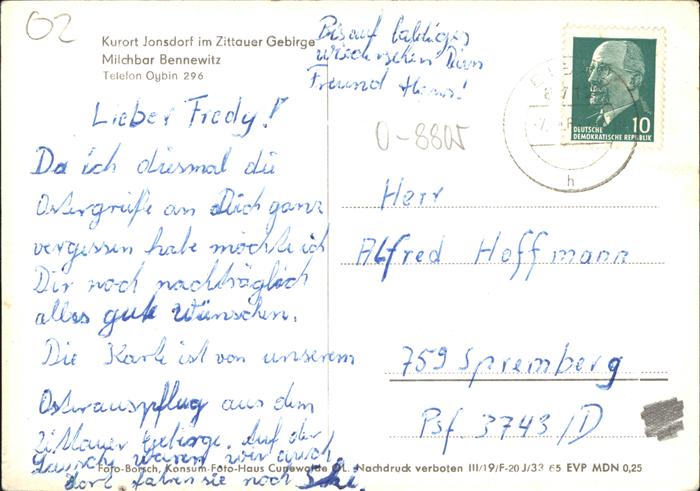 02
Kurort Jonsdorf im Zittauer Gebirge
Milchbar Bennewitz
Telefon Oybin 296
Lieber Fredy!
Da ich diesmal die
Ostergrüße an Dich ganz
vergessen habe möchte ich
Dir noch nachträglich
alles gute wünschen.
Die Karte ist von unserem
Osterauspflug aus dem
Zittauer Gebirge. Auf der
waren wir auch
dort fahren sie noch Ski.
Bis auf baldiges
wiedersehen Dein
Freund Hans!
0-8805
DEUTSCHE
DEMOKRATISCHE REPUBLIK
10
h
Herr
Alfred Hoffmann
759 Spremberg
Psf 3743/D
Foto-Borsch, Konsum-Foto-Haus Cunewalde OL. Nachdruck verboten III/19/F-20 J/33 65 EVP MDN 0,25